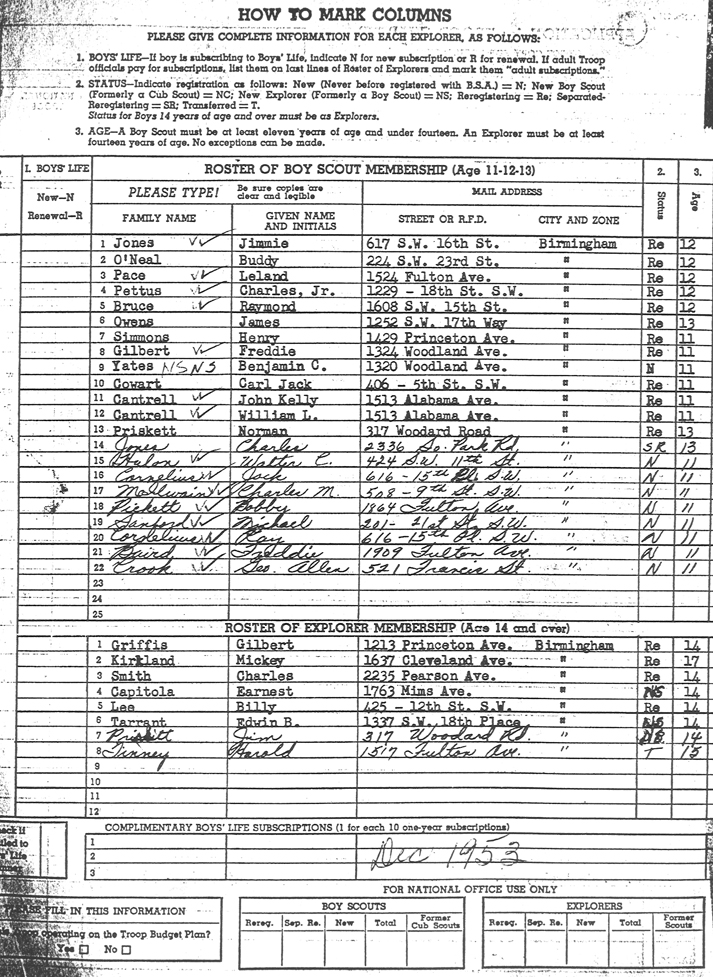 HOW TO MARK COLUMNS
PLEASE GIVE COMPLETE INFORMATION FOR EACH EXPLORER, AS FOLLOWS:
1. BOYS' LIFE—If boy is subscribing to Boys' Life, indicate N for new subscription or R for renewal. If adult Troop
officials pay for subscriptions, list them on last lines of Roster of Explorers and mark them "adult subscriptions."
2. STATUS—Indicate registration as follows: New (Never before registered with B.S.A.) = N; New Boy Scout
(Formerly a Cub Scout) = NC; New Explorer (Formerly a Boy Scout) = NS; Reregistering = Re; Separated-
Reregistering = SR; Transferred = T.
Status for Boys 14 years of age and over must be as Explorers.
3. AGE—A Boy Scout must be at least eleven years of age and under fourteen. An Explorer must be at least
fourteen years of age. No exceptions can be made.
1. BOYS' LIFE ROSTER OF BOY SCOUT MEMBERSHIP (Age 11-12-13) 2. 3.
New—N
Renewal—R
PLEASE TYPE! Be sure copies are clear and legible MAIL ADDRESS Status Age
FAMILY NAME GIVEN NAME AND INITIALS STREET OR R.F.D. CITY AND ZONE
1 Jones Jimmie 617 S.W. 16th St. Birmingham Re 12
2 O'Neal Buddy 224 S.W. 23rd St. " Re 12
3 Pace Leland 1524 Fulton Ave. " Re 12
4 Pettus Charles, Jr. 1229 - 18th St. S.W. " Re 12
5 Bruce Raymond 1608 S.W. 15th St. " Re 12
6 Owens James 1252 S.W. 17th Way " Re 13
7 Simmons Henry 1429 Princeton Ave. " Re 11
8 Gilbert Freddie 1324 Woodland Ave. " Re 11
9 Yates NS NS Benjamin C. 1320 Woodland Ave. " N 11
10 Gowart Carl Jack 406 - 5th St. S.W. " Re 11
11 Cantrell John Kelly 1513 Alabama Ave. " Re 11
12 Cantrell William L. 1513 Alabama Ave. " Re 11
13 Priskett Norman 317 Woodard Road " Re 13
14 Jones Charles 2336 So. Park Rd. " SR 13
15 Walter C. 424 S.W. 11th St. " N 11
16 Cornelius Jack 616 - 15th Pl. S.W. " N 11
17 McIlwain Charles M. 508 - 9th St. S.W. " N 11
18 Pickett Bobby 1864 Fulton Ave. " N 11
19 Sanford Michael 201 - 21st St. S.W. " N 11
20 Cornelius Ray 616 - 15th Pl. S.W. " N 11
21 Baird Freddie 1909 Fulton Ave. " N 11
22 Crook Geo. Allen 521 Francis St. " N 11
23
24
25
ROSTER OF EXPLORER MEMBERSHIP (Age 14 and over)
1 Griffis Gilbert 1213 Princeton Ave. Birmingham Re 14
2 Kirkland Mickey 1637 Cleveland Ave. " Re 17
3 Smith Charles 2235 Pearson Ave. " Re 14
4 Capitola Earnest 1763 Mims Ave. " NS 14
5 Lee Billy 425 - 12th St. S.W. " Re 14
6 Tarrant Edwin B. 1337 S.W. 18th Place " NS 14
7 Priskitt Jim 317 Woodard Rd. " NS 14
8 Tinney Harold 1517 Fulton Ave. " T 15
9
10
11
12
COMPLIMENTARY BOYS' LIFE SUBSCRIPTIONS (1 for each 10 one-year subscriptions)
1
2
3
Dec 1953
FOR NATIONAL OFFICE USE ONLY
FILL IN THIS INFORMATION
operating on the Troop Budget Plan?
Yes No
BOY SCOUTS
Rereg. Sep. Re. New Total Former Cub Scouts
EXPLORERS
Rereg. Sep. Re. New Total Former Scouts